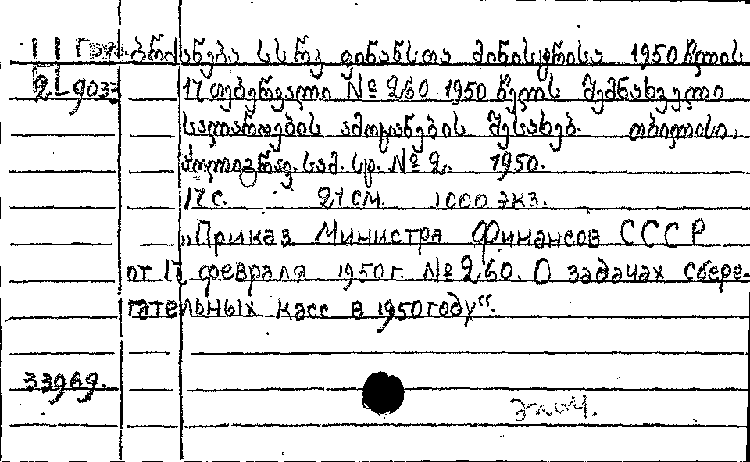 ბრძანება სსრკ ფინანსთა მინისტრისა 1950 წლის
2 9033 17 თებერვალი № 260. 1950 წელს შემნახველი
სალაროების ამოცანების შესახებ. თბილისი,
პოლიგრაფ. სამ. სტ. № 2. 1950.
17 с. 21 см. 1000 экз.
„Приказ Министра Финансов СССР
от 17 февраля 1950 г. № 260. О задачах сбере-
гательных касс в 1950 году“.
33969.